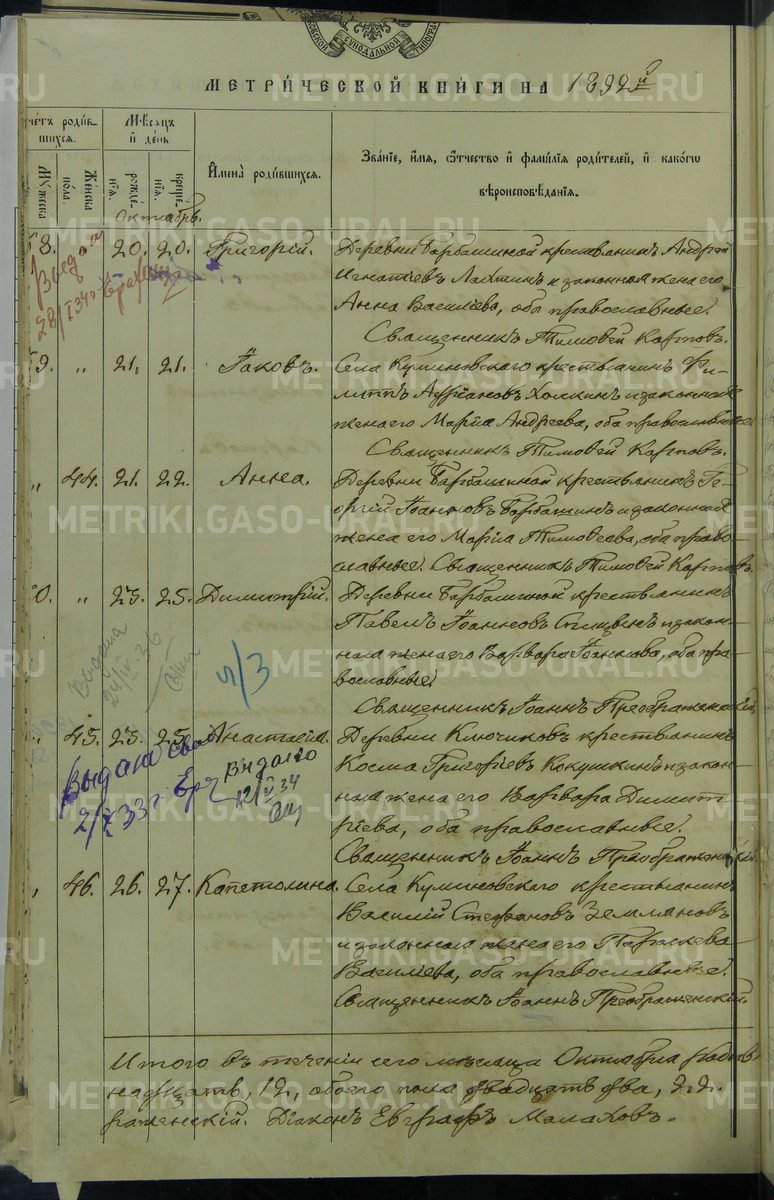 СУНОДАЛЬНОЙ
МЕТРИ́ЧЕСКОЙ КНИ́ГИ НА 1892й
Счётъ роди́в-
шихся.
Мужеска
по́ла.
Женска
Мѣсяцъ
и де́нь
рожде́-
нїя.
креще́-
нїя.
И҆мена̀ роди́вшихся.
Зва́нїе, и҆́мя, ѻ҆́тчество и҆ фами́лїя роди́телей, и҆ како́гѡ
вѣроисповѣ́данїя.
Октябрь.
58. 20. 20. Григорій. Деревни Барбашиной крестьянинъ Андрей
Игнатіевъ Лахтинъ и законная жена его
Анна Василіева, оба православные.
Священникъ Тимоѳей Карповъ.
Выдан
28/I 34 г.
59. „ 21. 21. Іаковъ. Села Куминовскаго крестьянинъ Фи-
липпъ Адріановъ Холкинъ и законная
жена его Марія Андреева, оба православные.
Священникъ Тимоѳей Карповъ.
„ 44. 21. 22. Анна. Деревни Барбашиной крестьянинъ Ге-
оргій Іоанновъ Барбашинъ и законная
жена его Марія Тимоѳеева, оба право-
славные. Священникъ Тимоѳей Карповъ.
60. „ 25. 25. Димитрій. Деревни Барбашиной крестьянинъ
Павелъ Іоанновъ Спицынъ и закон-
ная жена его Варвара Іоаннова, оба пра-
вославные.
Священникъ Іоаннъ Преображенскій.
Выдана
24/IV 36
ч/3
„ 45. 25. 25. Анастасія. Деревни Ключиковъ крестьянинъ
Косма Григоріевъ Кокушкинъ и закон-
ная жена его Варвара Димит-
ріева, оба православные.
Священникъ Іоаннъ Преображенскій.
Выдана
2/X 33 г.
Выдано
12/V 34
„ 46. 26. 27. Капетолина. Села Куминовскаго крестьянинъ
Василій Стефановъ Земляновъ
и законная жена его Параскева
Василіева, оба православные.
Священникъ Іоаннъ Преображенскій.
Итого въ теченіи сего мѣсяца Октября родив
надцать, 12, обоего пола двадцать два, 22.
раженскій. Діаконъ Евграфъ Малаховъ.
METRIKI.GASO-URAL.RU